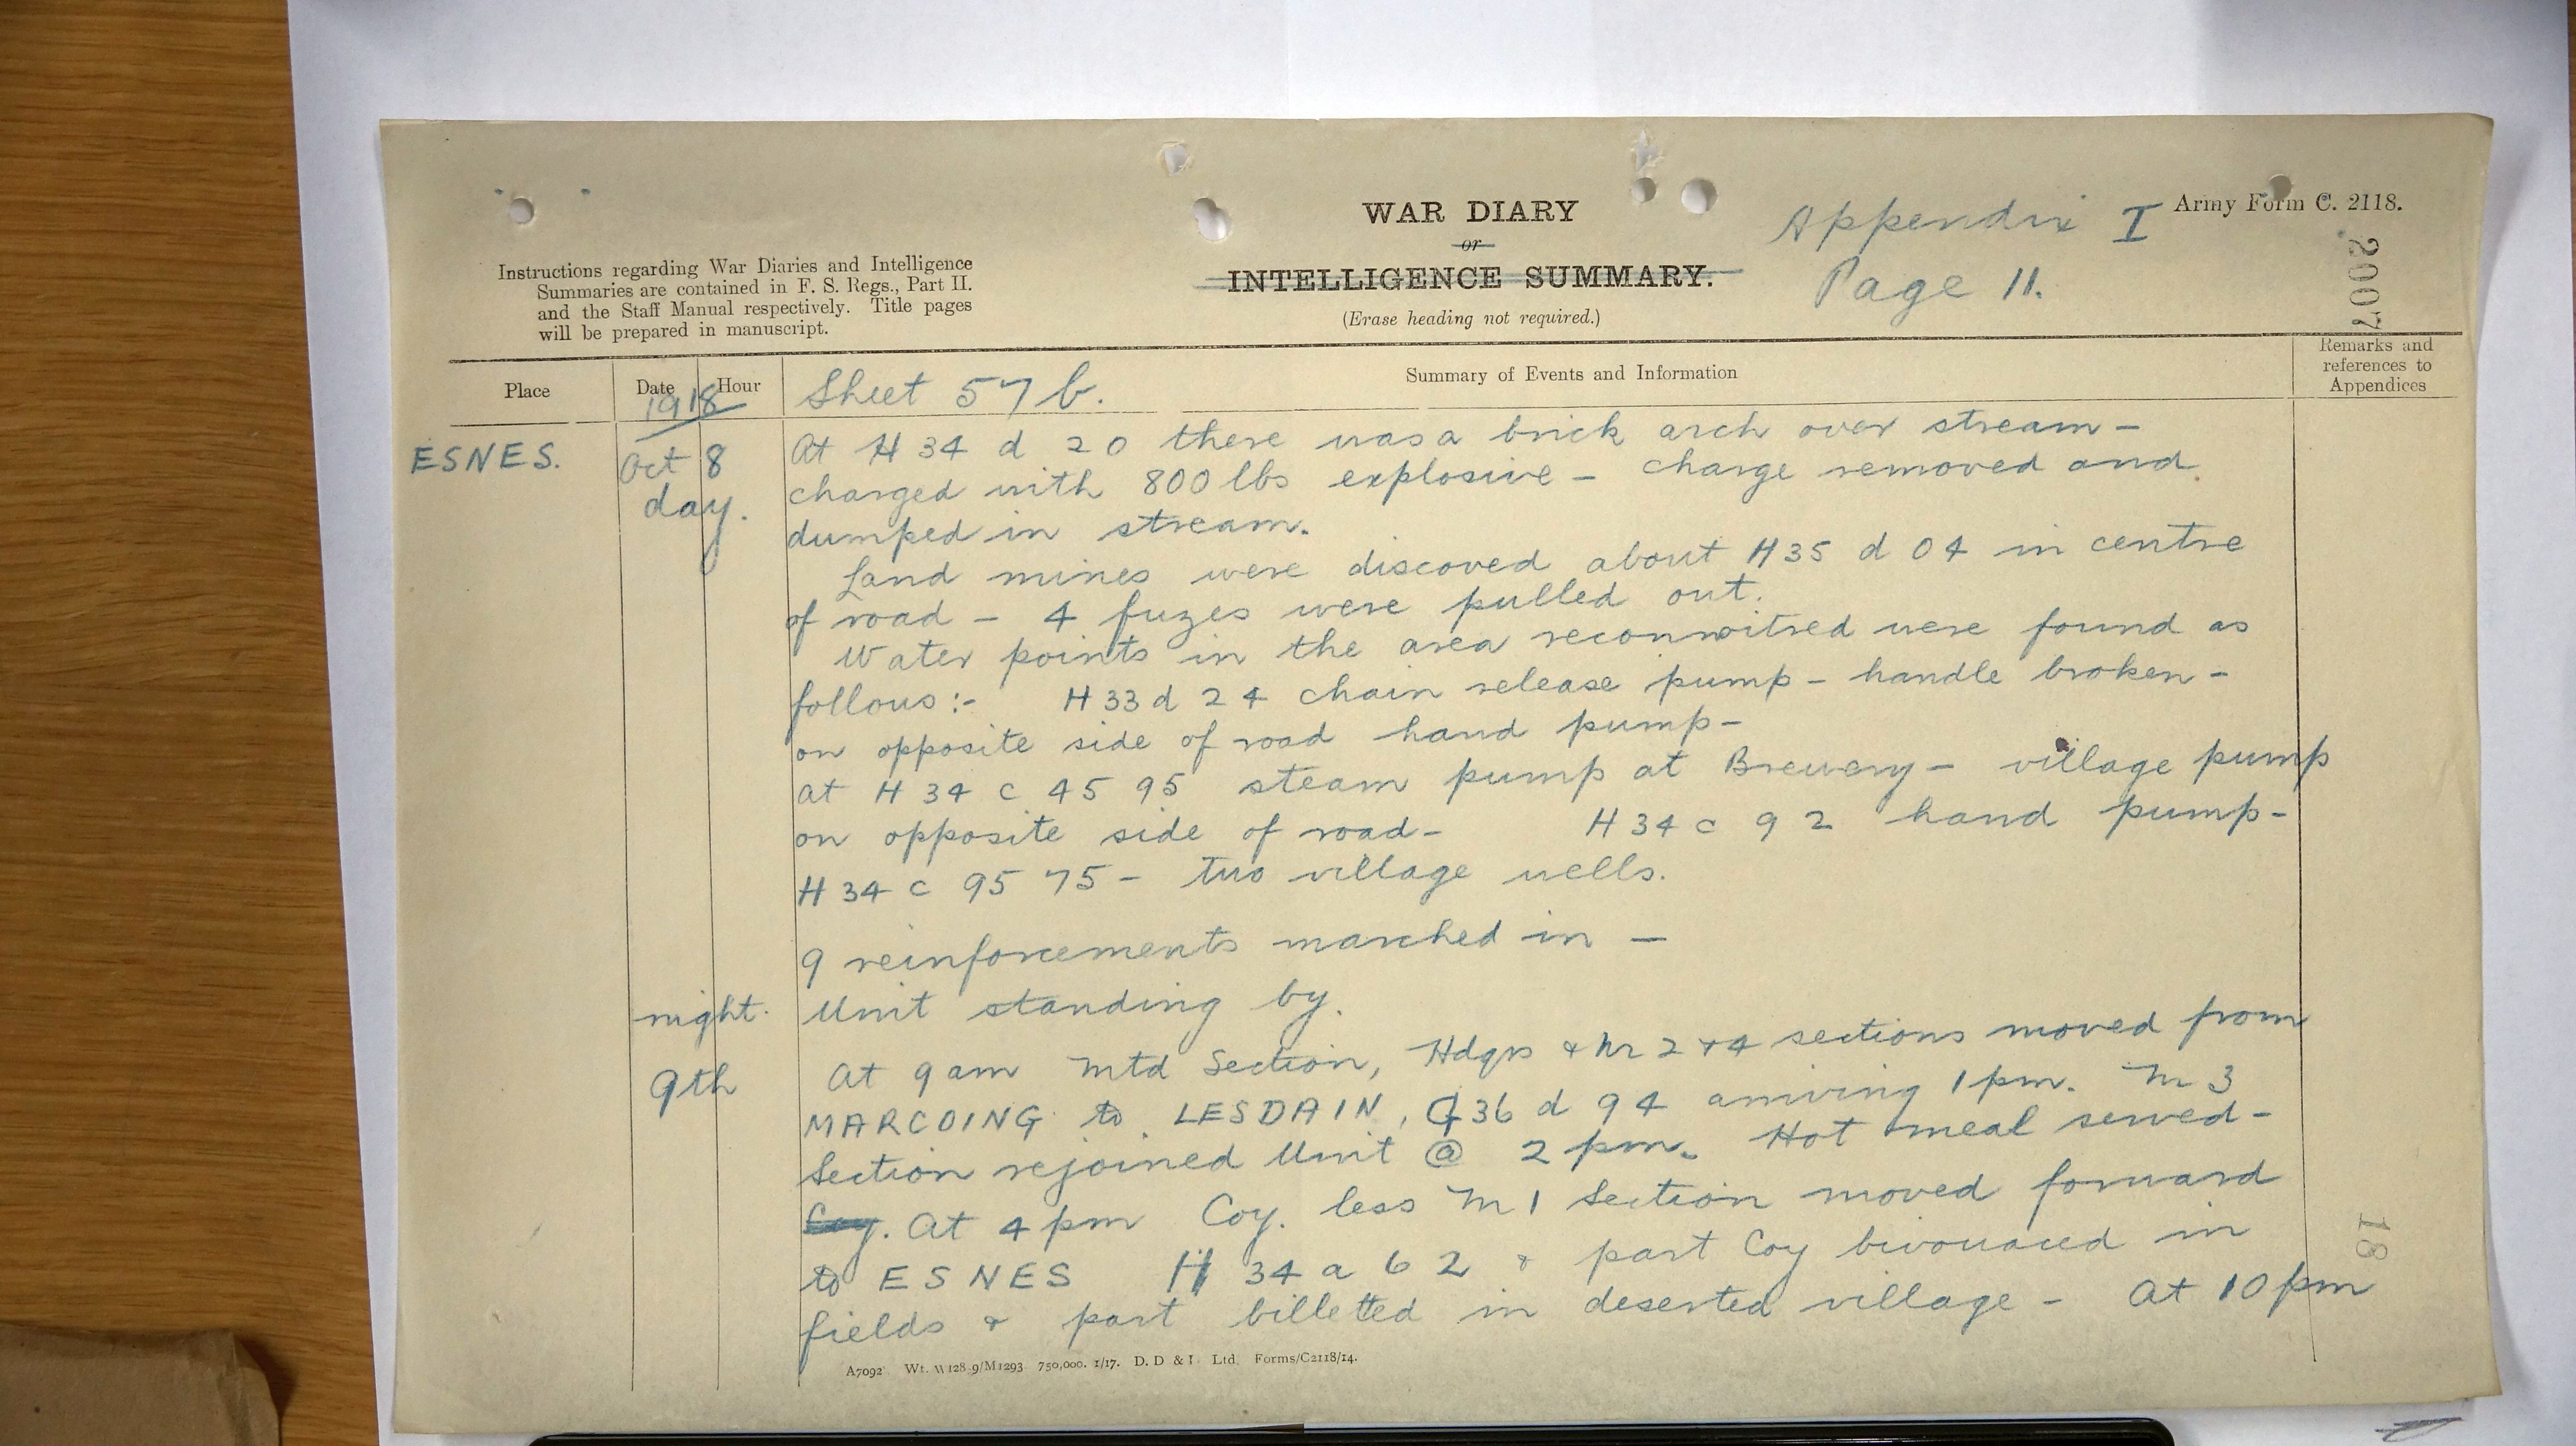 WAR DIARY
or
INTELLIGENCE SUMMARY.
(Erase heading not required.)
Appendix I
Page 11.
Army Form C. 2118.
2007
Instructions regarding War Diaries and Intelligence
Summaries are contained in F. S. Regs., Part II.
and the Staff Manual respectively. Title pages
will be prepared in manuscript.
Place
Date
Hour
1918
Sheet 57b.
Summary of Events and Information
Remarks and
references to
Appendices
ESNES. Oct 8 At H 34 d 2 0 there was a brick arch over stream –
day. charged with 800 lbs explosive – charge removed and
dumped in stream.
Land mines were discoved about H 35 d 0 4 in centre
of road – 4 fuzes were pulled out.
Water points in the area reconnoitred were found as
follows :- H 33 d 2 4 chain release pump – handle broken –
on opposite side of road hand pump –
at H 34 c 45 95 steam pump at Brewery – village pump
on opposite side of road – H 34 c 9 2 hand pump –
H 34 c 95 75 – two village wells.
9 reinforcements marched in –
night. Unit standing by.
9th At 9 am Mtd Section, Hdqrs & Nr 2 & 4 sections moved from
MARCOING to LESDAIN, G 36 d 9 4 arriving 1 pm. Nr 3
Section rejoined Unit @ 2 pm. Hot meal served –
Coy. At 4 pm Coy. less Nr 1 Section moved forward
to ESNES H 34 a 6 2 & part Coy bivouaced in
fields & part billetted in deserted village – At 10 pm
18
A7092 Wt. W128.9/M1293 750,000. 1/17. D. D & L Ltd. Forms/C2118/14.